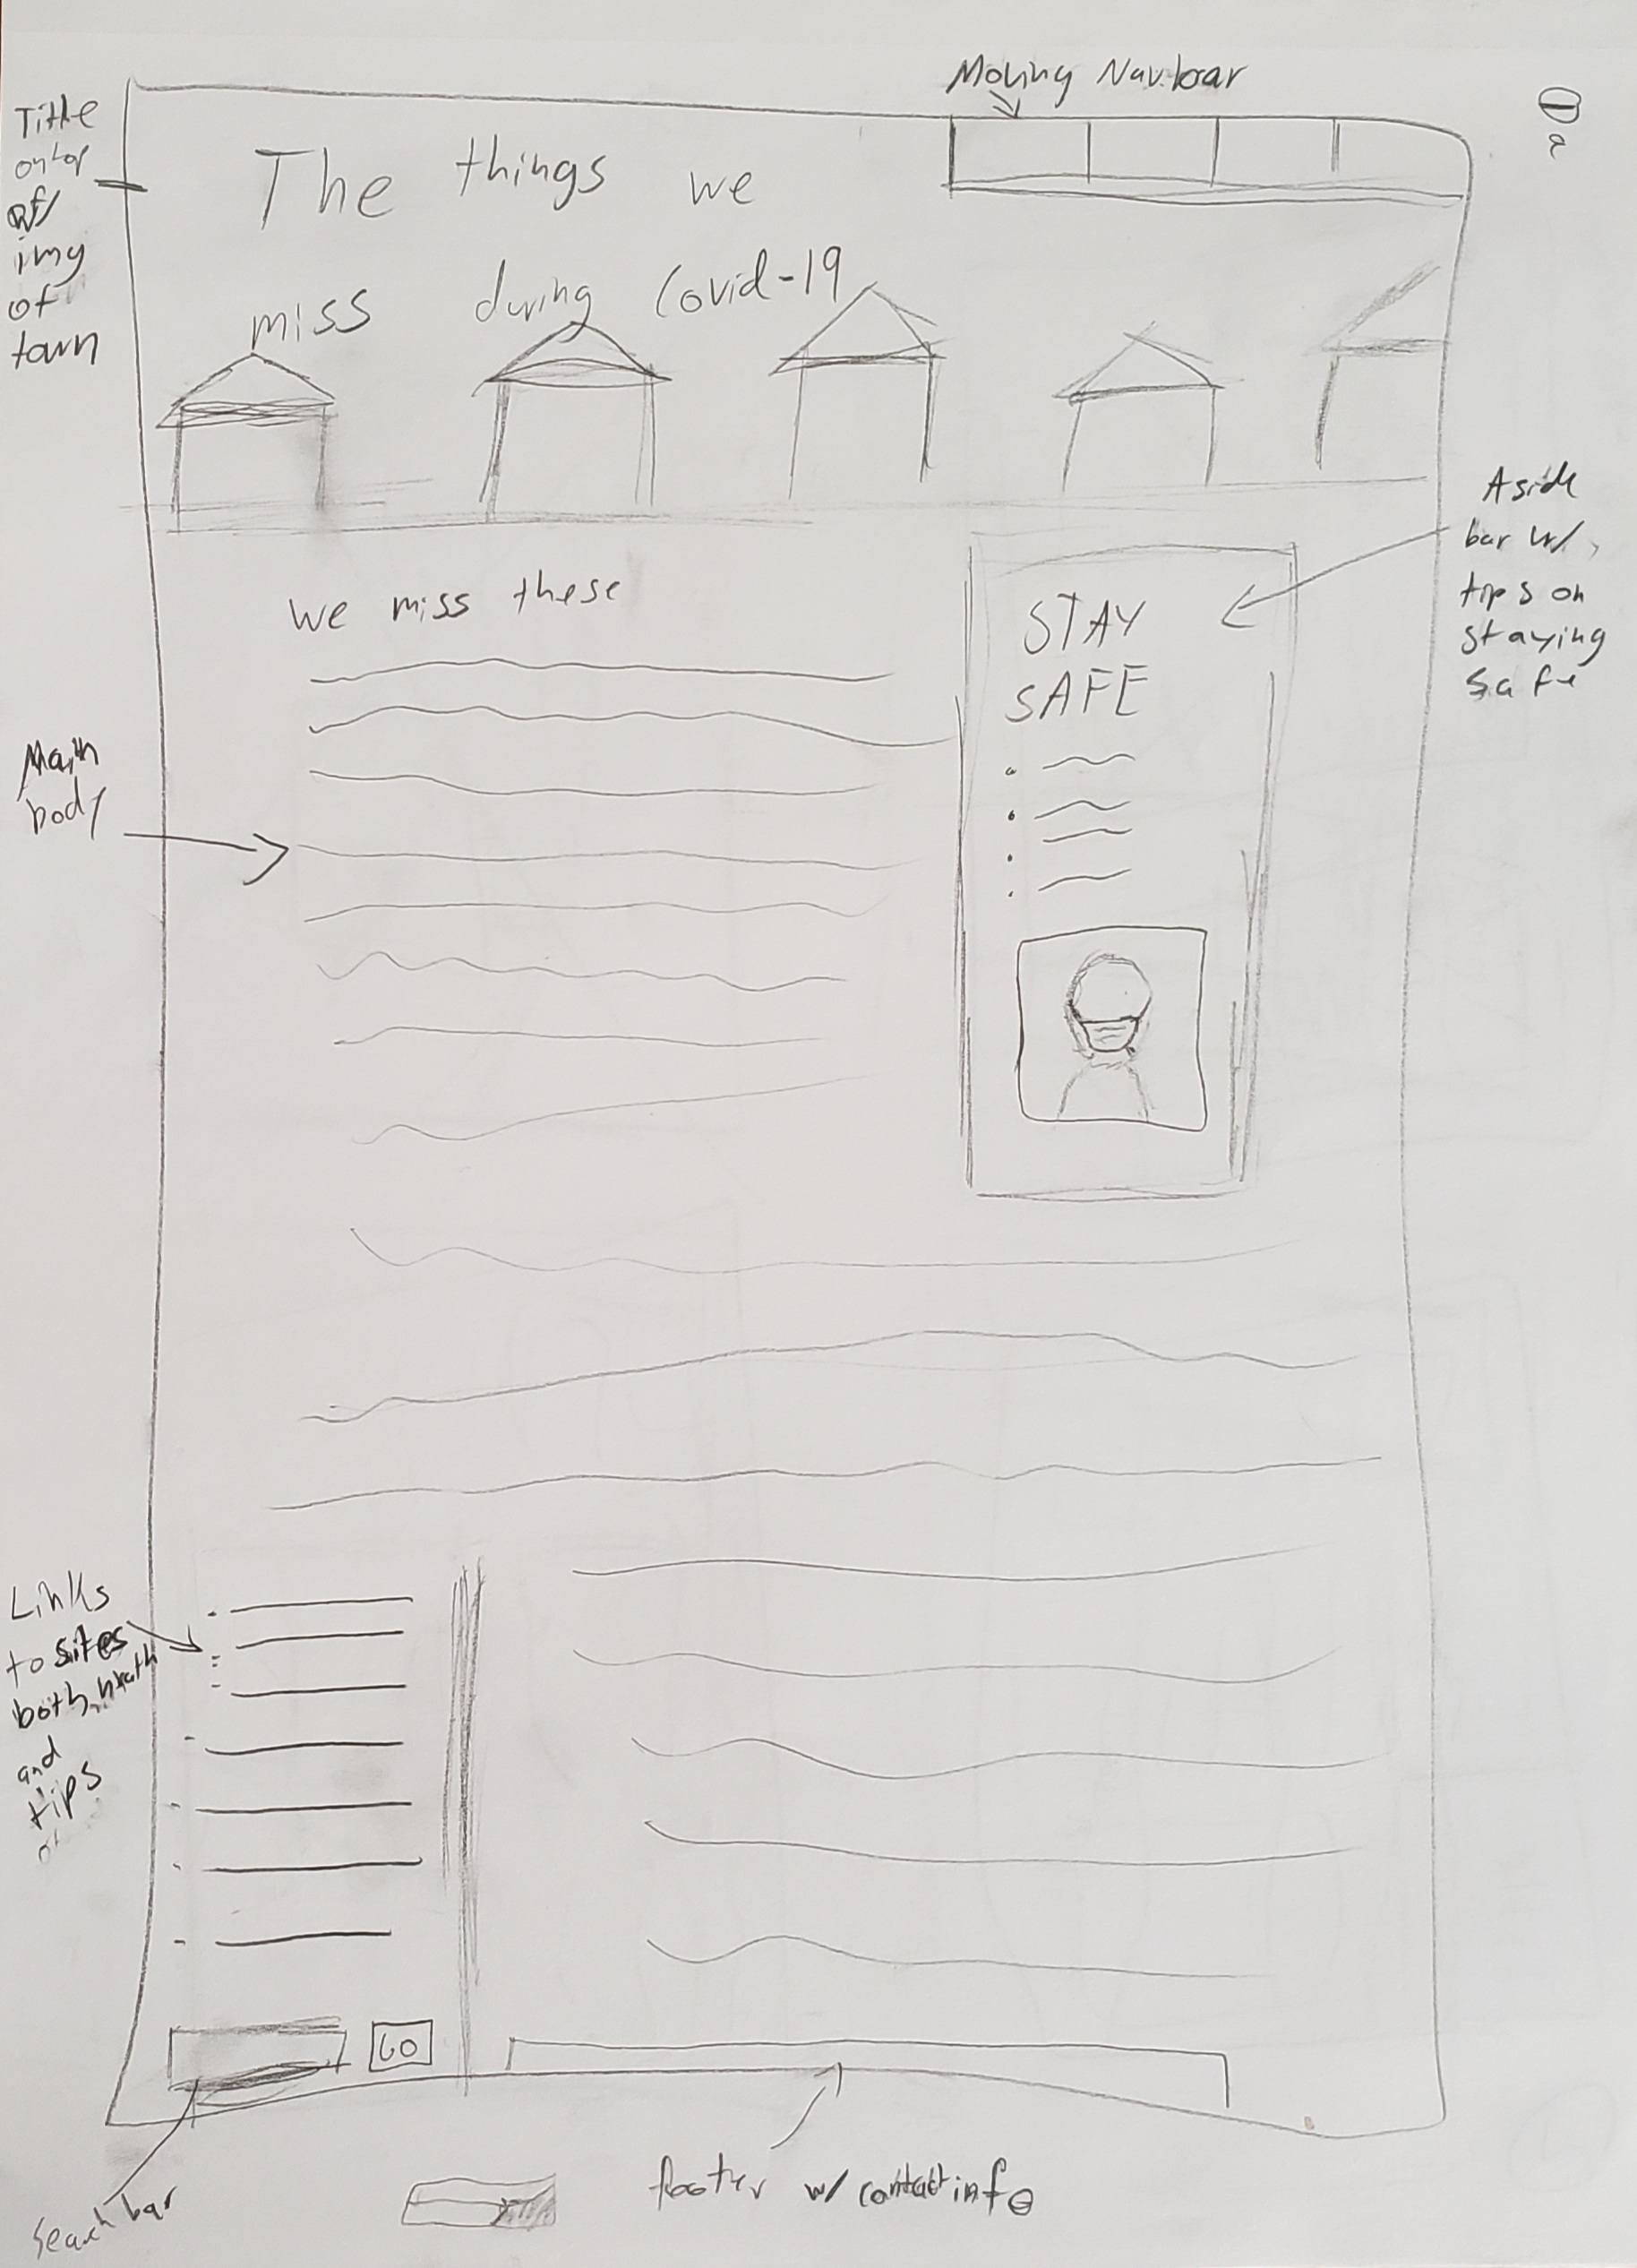 Moving Navbar
Title
ontop
of/
img
of
town
The things we
miss during Covid-19
Aside
bar w/
tips on
staying
safe
we miss these
STAY
SAFE
Main
body
Links
to sites
both heath
and
tips
GO
Search bar
footer w/ contact info